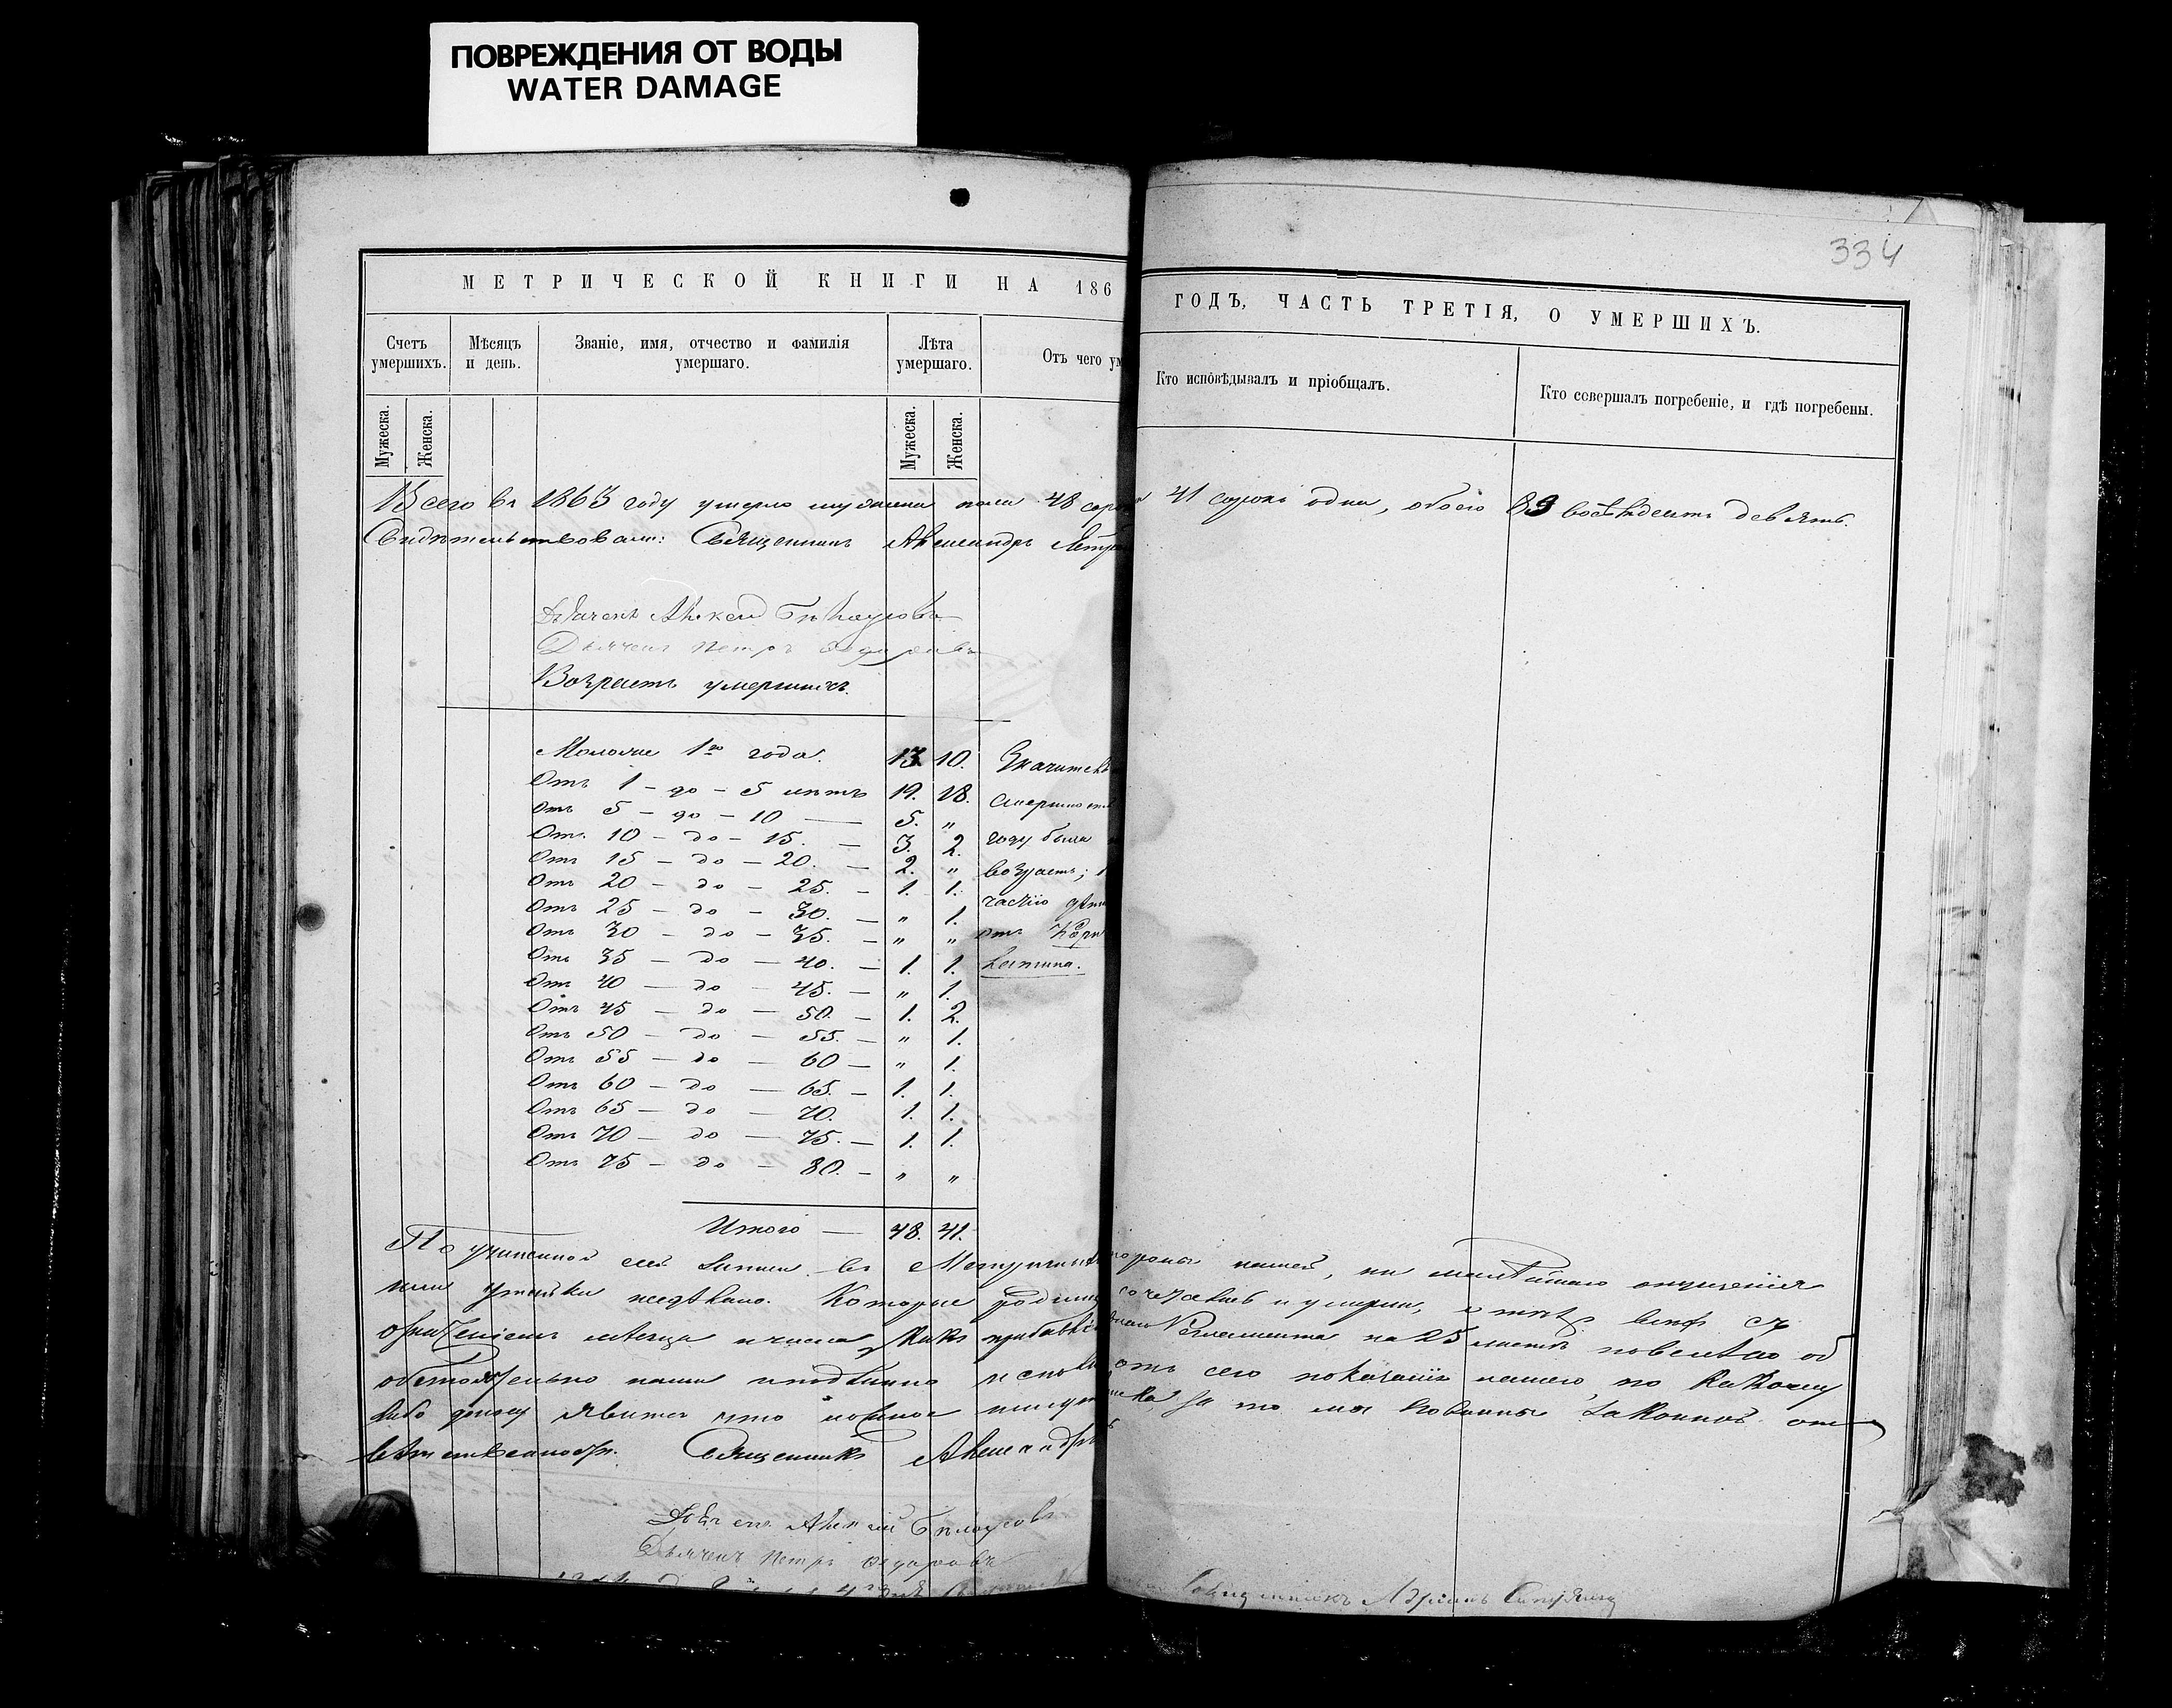 ПОВРЕЖДЕНИЯ ОТ ВОДЫ
WATER DAMAGE
334
МЕТРИЧЕСКОЙ КНИГИ НА 186 ГОДЪ, ЧАСТЬ ТРЕТІЯ, О УМЕРШИХЪ.
Счетъ умершихъ.
Мѣсяцъ и день.
Званіе, имя, отчество и фамилія умершаго.
Лѣта умершаго.
Отъ чего ум
Кто исповѣдывалъ и пріобщалъ.
Кто совершалъ погребеніе, и гдѣ погребены.
Мужеска.
Женска.
Мужеска.
Женска.
Всего въ 1863 году умерло мужеска пола 48 сор 41 сорокъ одна, обоего 89 восемьдесятъ девять.
Свидѣтельствовали: Священникъ Александръ Петр
Дьячекъ Алексѣй Бѣлоусовъ
Дьячекъ Петръ
Возрастъ умершихъ.
Моложе 1го года. 13. 10. Значитель
Отъ 1 - до - 5 лѣтъ 19. 18. смертност
Отъ 5 - до - 10 — 5. "
Отъ 10 - до - 15. — 3. 2. году была
Отъ 15 - до - 20. — 2. " возрастъ;
Отъ 20 - до - 25. - 1. 1.
Отъ 25 - до - 30. — " 1. частію дѣт
Отъ 30 - до - 35. - " " отъ
Отъ 35 - до - 40. - 1. 1.
Отъ 40 - до - 45. — " 1.
Отъ 45 - до - 50. — 1. 2.
Отъ 50 - до - 55. — " 1.
Отъ 55 - до - 60 — " 1.
Отъ 60 - до - 65. - 1. 1.
Отъ 65 - до - 70. 1. 1.
Отъ 70 - до - 75. — 1. 1.
Отъ 75 - до - 80. — " "
Итого — 48. 41.
По учиненной сей записи въ Метрич нашей, ни малѣйшаго опущенія
или утайки несдѣлано. Которые родил и умерли, о тѣхъ всѣхъ съ
означеніемъ мѣсяца и числа, какъ прибавлен Регламента на 25 листѣ повелѣно об
обстоятельно нами и подлинно отъ сего показанія нашего, по какому
либо доносу явится что ложное за то мы повинны законной от
вѣтственности. Священникъ Александръ
Дьячекъ Алексѣй Бѣлоусовъ
Дьячекъ Петръ